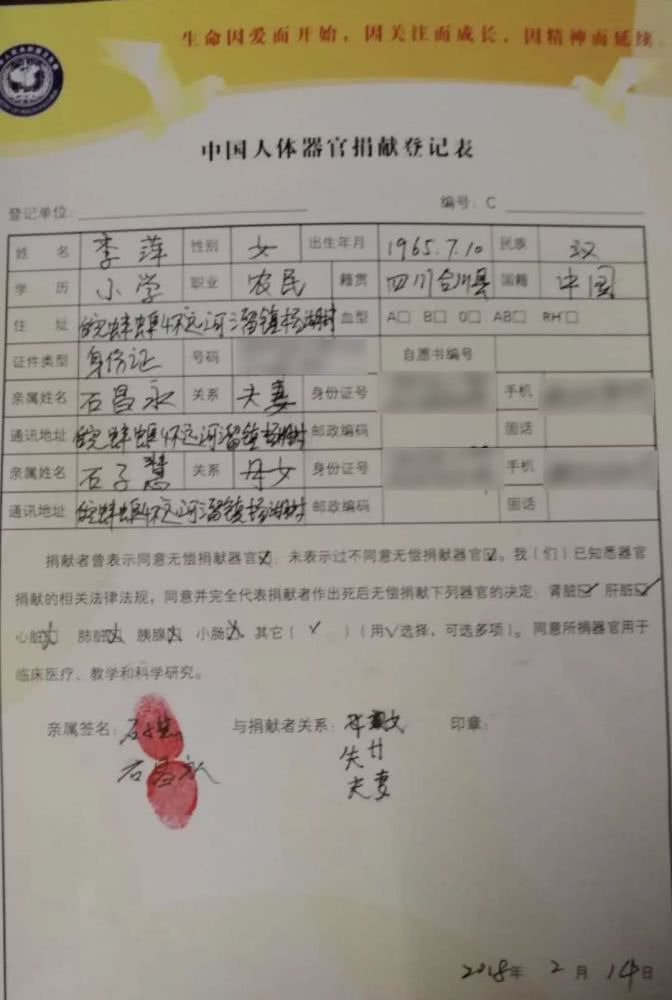 生命因爱而开始，因关注而成长，因精神而延续。
中国人体器官捐献登记表
登记单位： 编号：C
姓 名 李萍 性别 女 出生年月 1965.7.10 民族 汉
学 历 小学 职业 农民 籍贯 四川合川县 国籍 中国
住 址 皖蚌埠怀远河溜镇杨湖村 血型 A□ B□ O□ AB□ RH□
证件类型 身份证 号码 自愿书编号
亲属姓名 石昌永 关系 夫妻 身份证号 手机
通讯地址 皖蚌埠怀远河溜镇杨湖村 邮政编码 固话
亲属姓名 石子慧 关系 母女 身份证号 手机
通讯地址 皖蚌埠怀远河溜镇杨湖村 邮政编码 固话
捐献者曾表示同意无偿捐献器官☑，未表示过不同意无偿捐献器官☑。我（们）已知悉器官
捐献的相关法律法规，同意并完全代表捐献者作出死后无偿捐献下列器官的决定：肾脏☑ 肝脏☑
心脏☑ 肺脏☑ 胰腺☑ 小肠☑ 其它（ ✓ ）（用√选择，可选多项）。同意所捐器官用于
临床医疗、教学和科学研究。
亲属签名： 与捐献者关系： 印章：
石昌永
夫妻
2018年 2月 14日